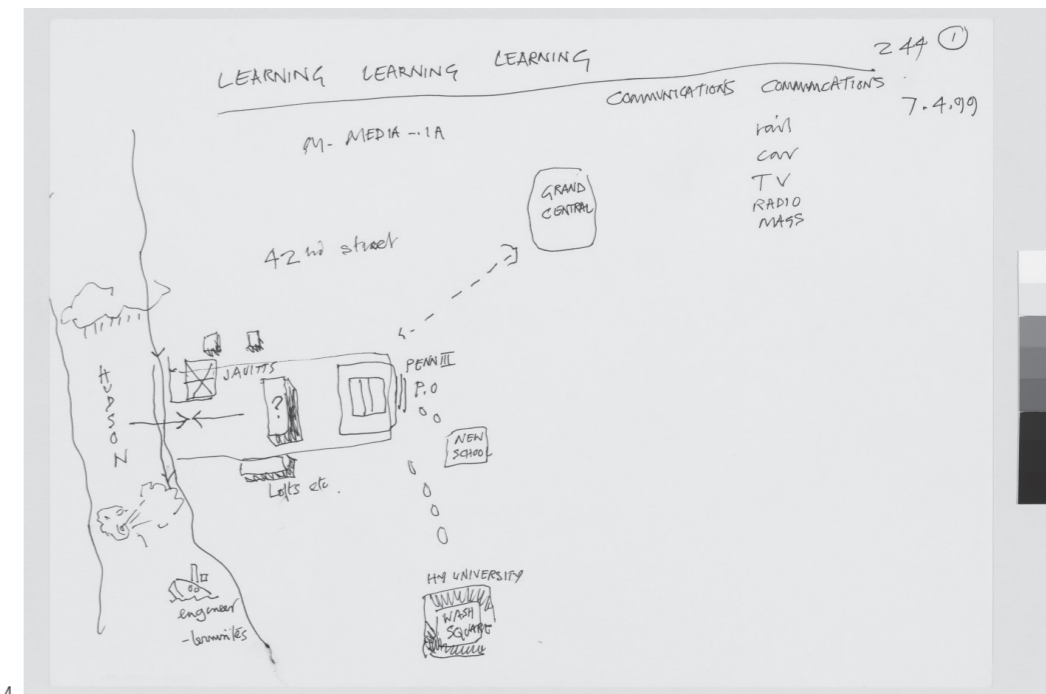 LEARNING LEARNING LEARNING
244 ①
COMMUNICATIONS COMMMCATIONS
7.4.99
M- MEDIA -. 1A
rail
car
TV
RADIO
MASS
GRAND
CENTRAL
42nd street
HUDSON
JAVITTS
PENN III
P.O
?
NEW
SCHOOL
Lofts etc.
engineer
HY UNIVERSITY
WASH
SQUARE
4